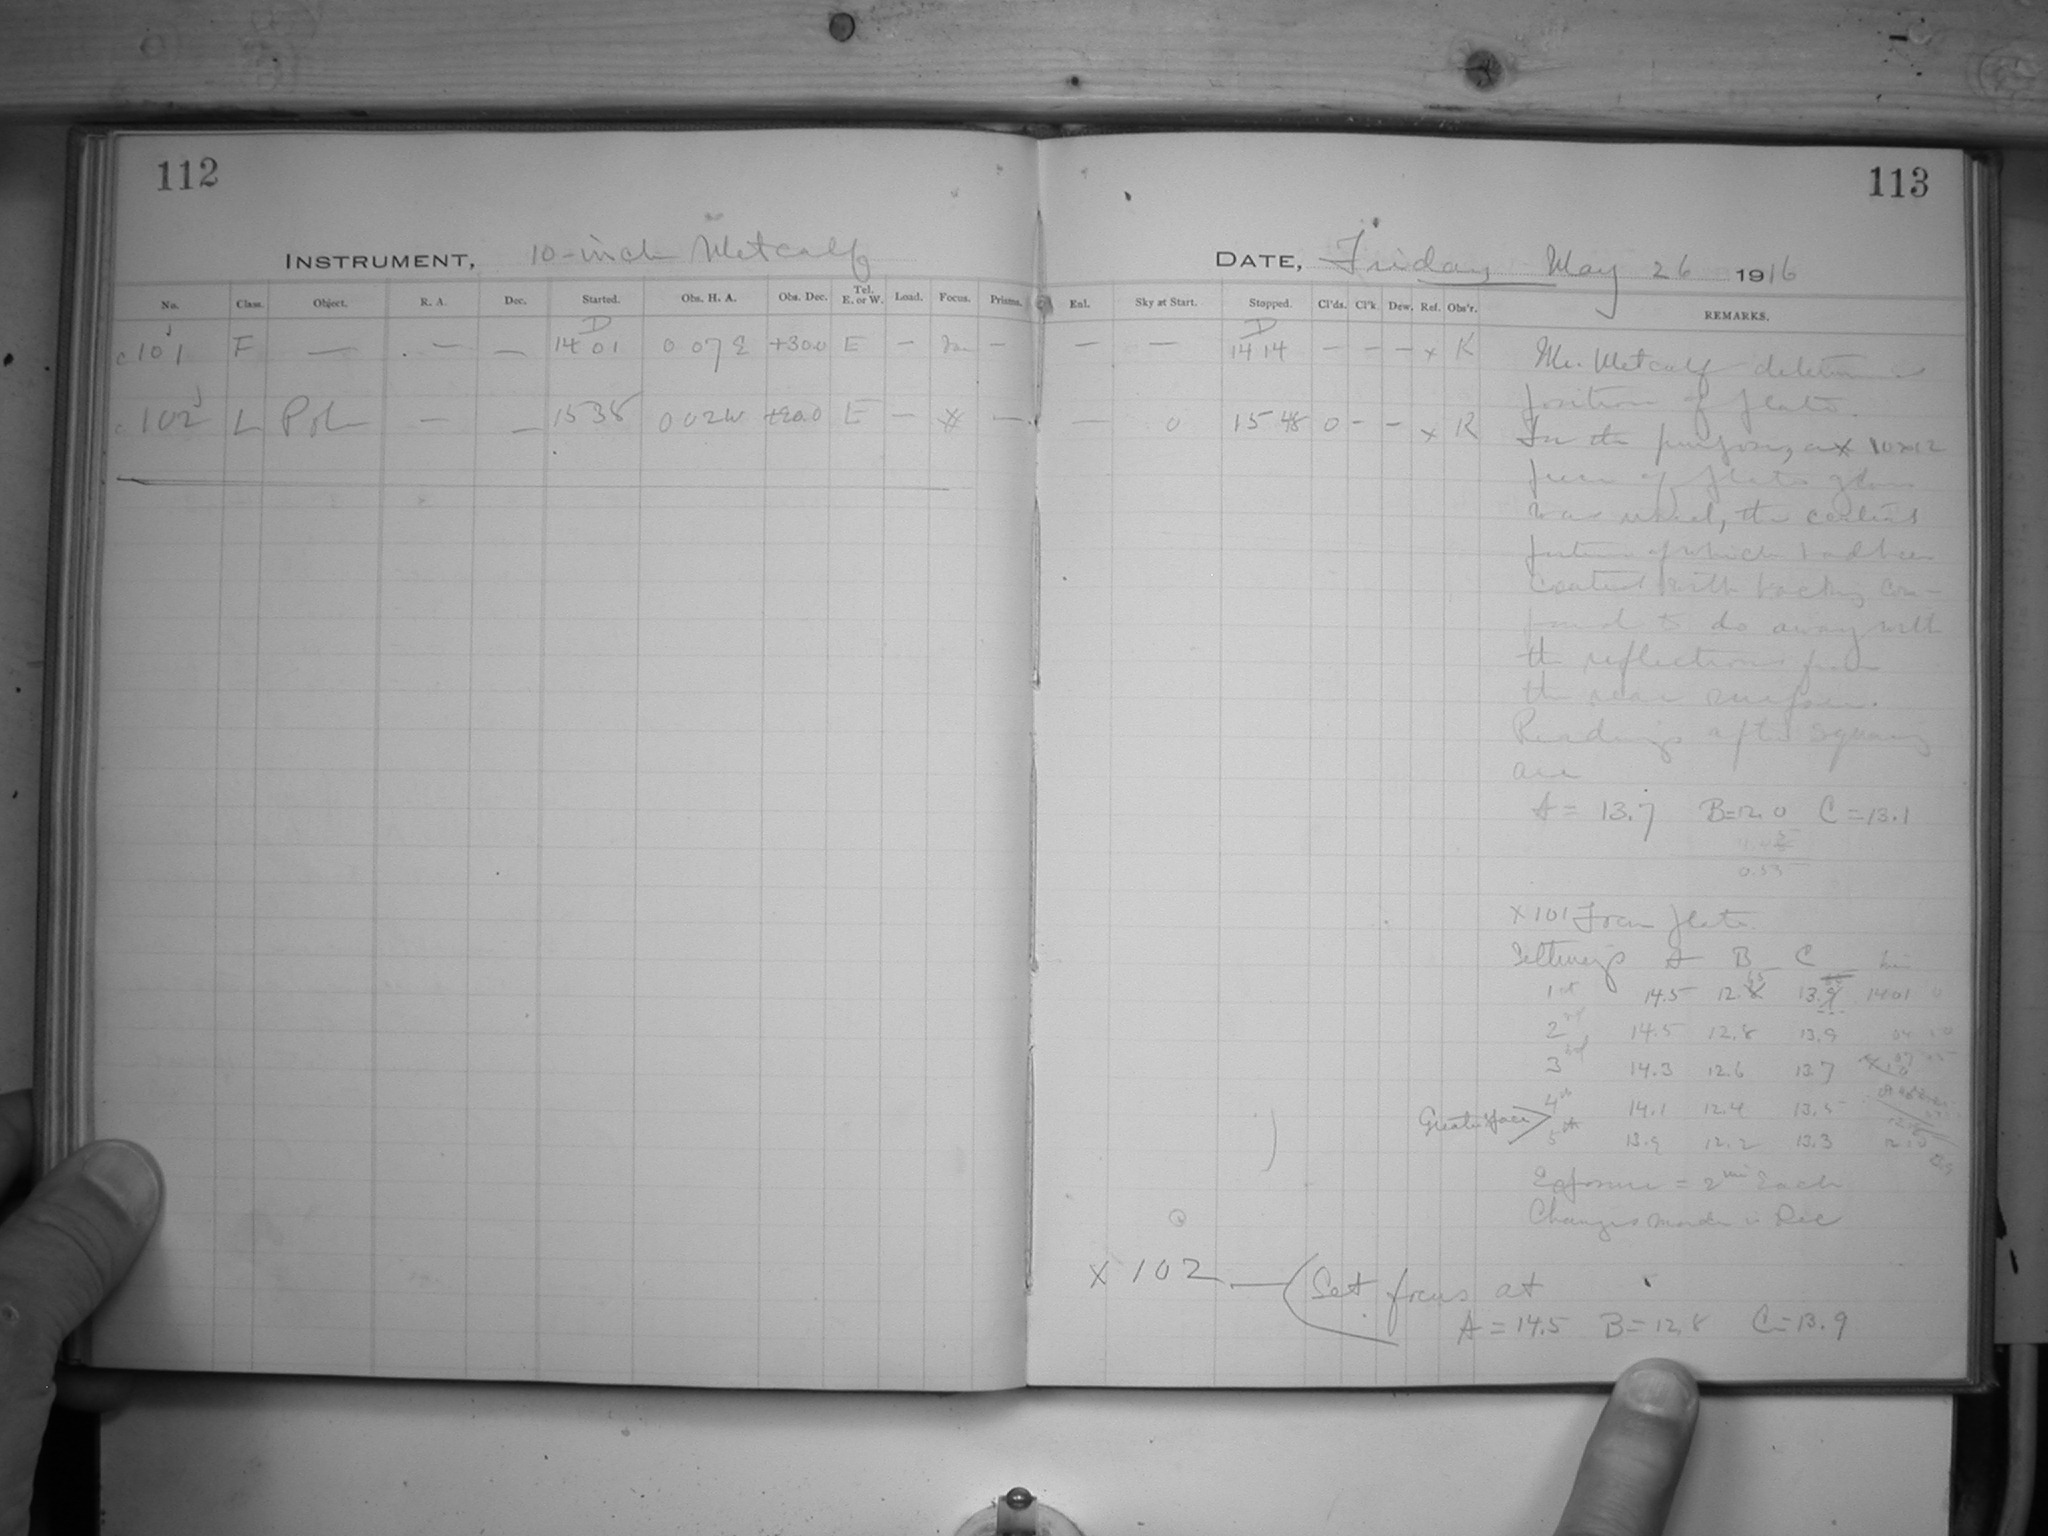 112
INSTRUMENT, 10-inch Metcalf
No. Class. Object. R. A. Dec. Started. Obs. H. A. Obs. Dec. Tel. E. or W. Load. Focus. Prisms.
c 101 F — — — 14 01 0 07 E +30.0 E — —
c 102 L Pole — — 15 38 0 02 W E — —
113
DATE, Friday May 26 1916
Enl. Sky at Start. Stopped. Cl'ds. Cl'k. Dew. Ref. Obs'r. REMARKS.
— — 14 14 — — — x K
— 0 15 48 0 - - x K
Mr. Metcalf determines
position of plate.
For the purpose, a 10x12
piece of plate glass
was used, the central
portion of which had been
coated with backing com-
pound to do away with
the reflections from
the rear surface.
Readings after squaring
are
A = 13.7 B = 12.0 C = 13.1
0.55
x 101 Focus plate
Settings A B C
1st 14.5 12.8 13.9 14 01
2nd 14.5 12.8 13.9
3rd 14.3 12.6 13.7
4th 14.1 12.4 13.5
5th 13.9 12.2 13.3
Greater space
Exposure = 2 min Each
Changes made in Dec
x 102 — Set focus at
A = 14.5 B = 12.8 C = 13.9